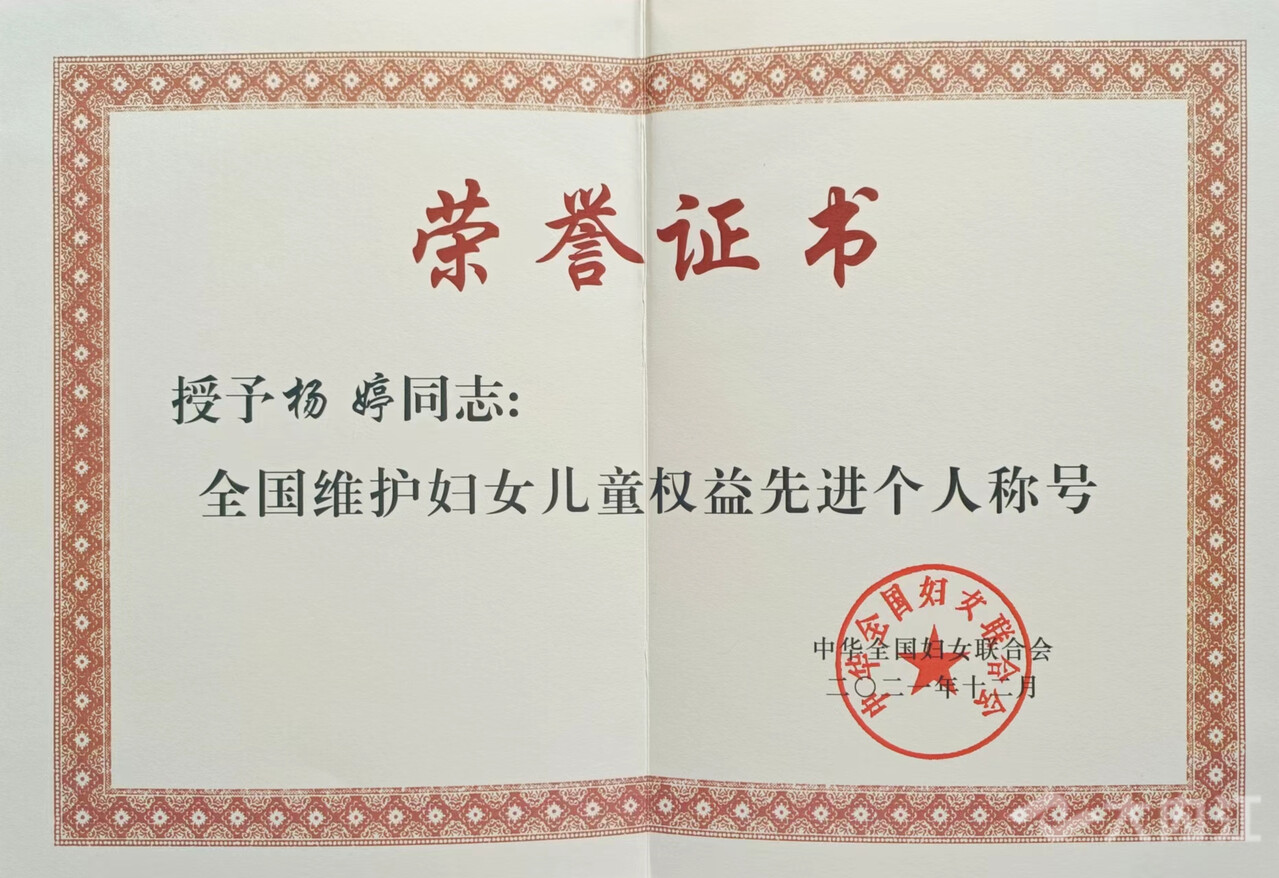 荣誉证书
授予杨婷同志:
全国维护妇女儿童权益先进个人称号
中华全国妇女联合会
中华全国妇女联合会
二〇二一年十二月